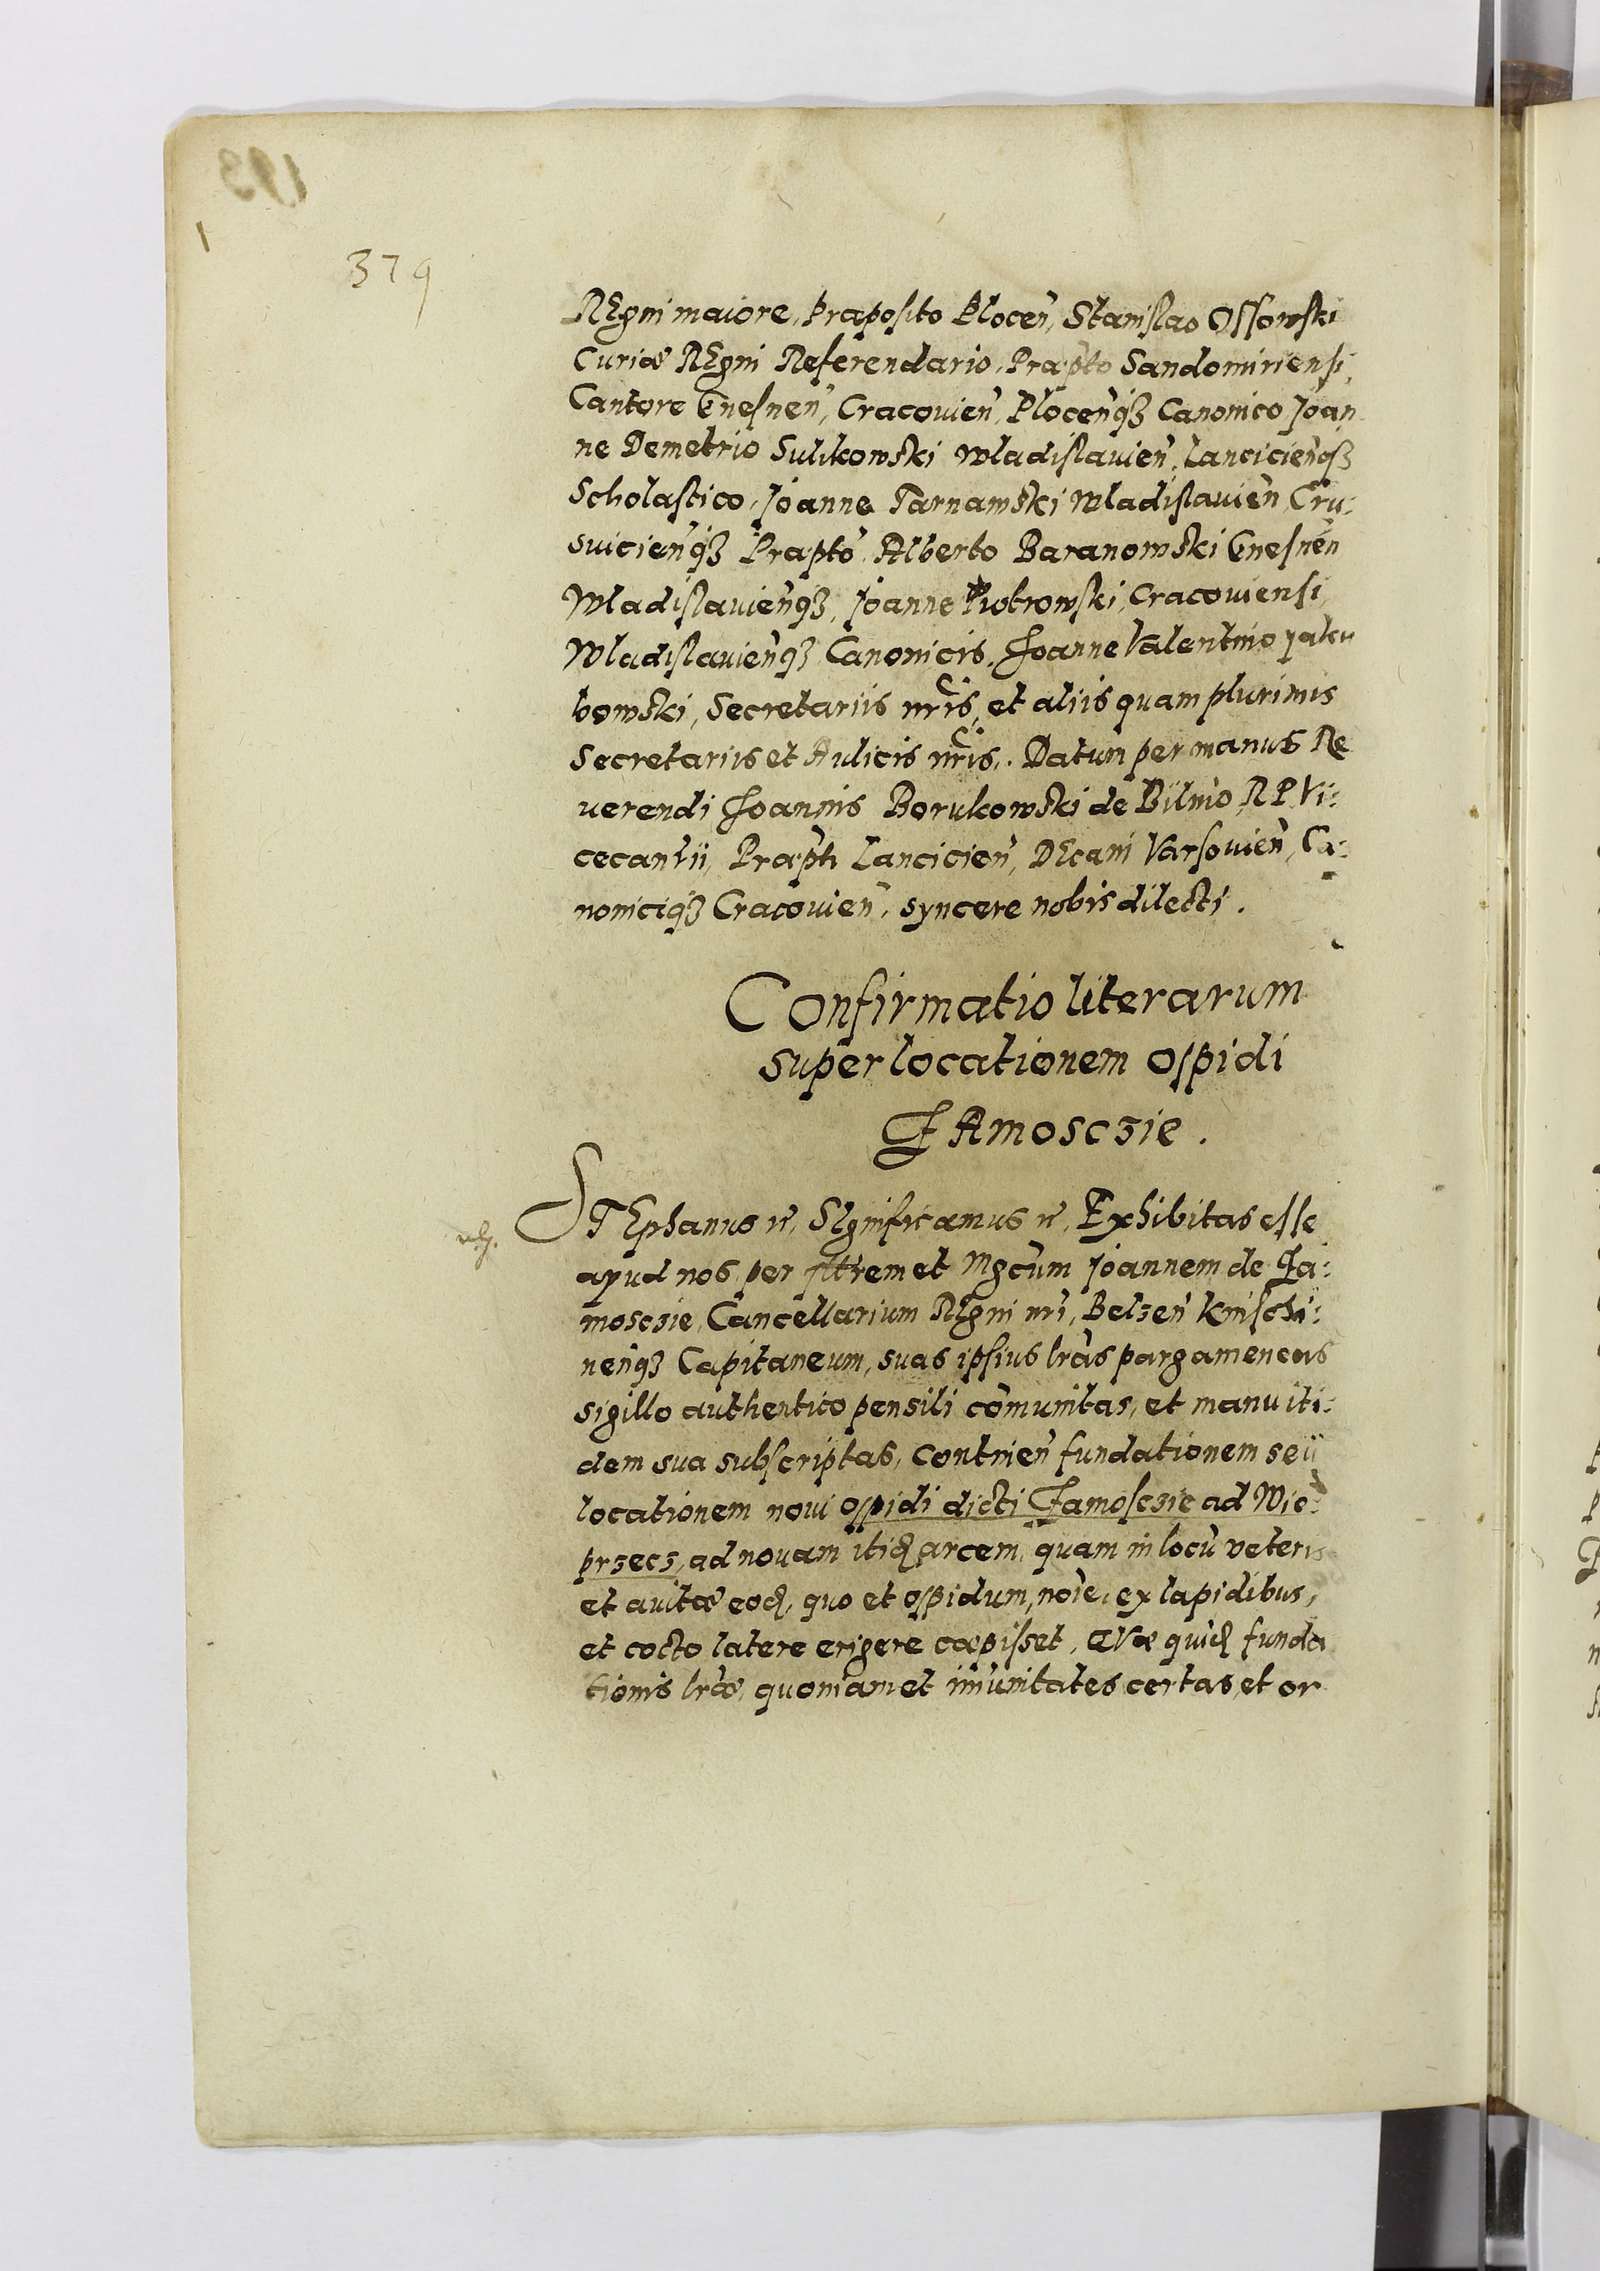 379
REgni maiore, Præposito Plocen̄, Stanislao Ossowski
Curiæ REgni Referendario, Præpto Sandomiriensi,
Cantore Gnesnen̄, Cracouien̄, Plocen̄qꝫ Canonico Joan
ne Demetrio Sulikowski Wladislauien̄, Lancicien̄qꝫ
Scholastico, Joanne Tarnawski Wladislauien̄ Cru:
suicien̄qꝫ Præpto Alberto Baranowski Gnesnen̄
Wladislauien̄qꝫ, Joanne Piotrowski, Cracouiensi,
Wladislauien̄qꝫ Canonicis, Joanne Valentino Jaku
bowski, Secretariis nr̄is, et aliis quam plurimis
Secretariis et Aulicis nr̄is. Datum per manus Re
uerendi Joannis Borukowski de Bilino, R P Vi:
cecanlii, Præpti Lancicien̄, DEcani Varsouien̄, Ca:
noniciqꝫ Cracouien̄, syncere nobis dilecti.
Confirmatio literarum
super locationem oppidi
ZAmosczie.
STEphanus etc, SIgnificamus etc, Exhibitas esse
apud nos, per Illrem et Mgcum Joannem de Za:
mosczie, Cancellarium REgni nr̄i, Belzen̄ Knischi:
nen̄qꝫ Capitaneum, suas ipsius lr̄as pargameneas
sigillo authentico pensili com̄unitas, et manu iti:
dem sua subscriptas, continen̄ fundationem seu
locationem noui oppidi dicti Zamosczie ad Wie:
przecz, ad nouam itidꝫ arcem, quam in locū veteris
et auitæ eodꝫ, quo et oppidum, noīe, ex lapidibus,
et cocto latere erigere cœpisset, QVæ quidꝫ funda
tionis lr̄æ, quoniam et im̄unitates certas, et or